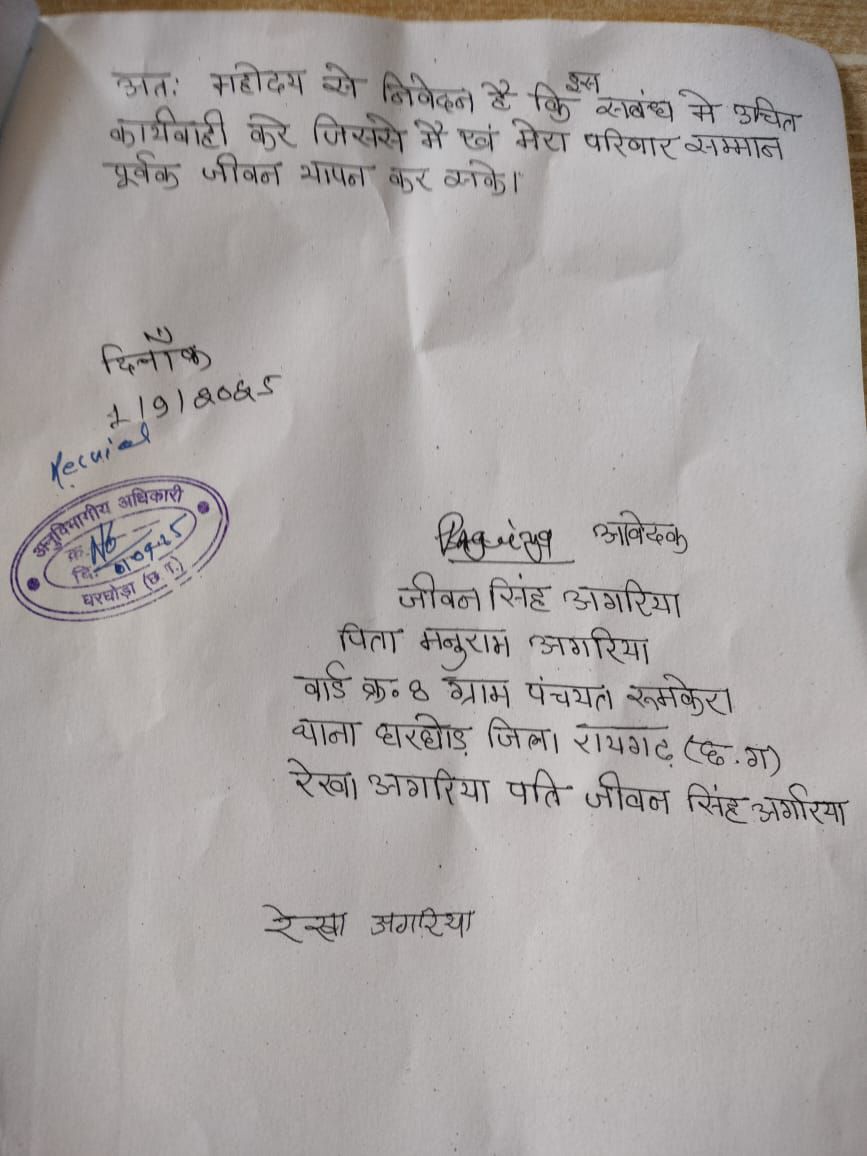 अतः महोदय से निवेदन है कि इस सबंध मे उचित
कार्यवाही करे जिससे मै एवं मेरा परिवार सम्मान
पूर्वक जीवन यापन कर सके।
दिनाँक
1/9/2025
अनुविभागीय अधिकारी
क्र. No
दि. 01-09-25
घरघोड़ा (छ.ग.)
आवेदक
जीवन सिंह अगरिया
पिता मनुराम अगरिया
वार्ड क्र. 8 ग्राम पंचयत रूमकेरा
थाना घरघोड़ जिला रायगढ़ (छ.ग)
रेखा अगरिया पति जीवन सिंह अगरिया
रेखा अगरिया